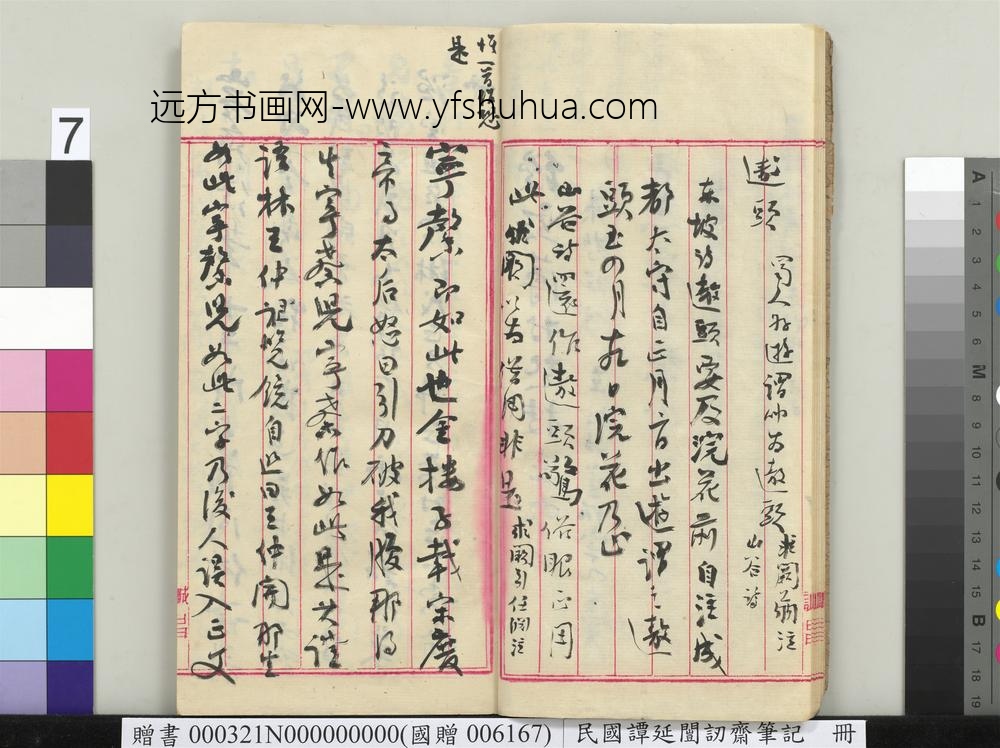 遨頭
蜀人好遊謂帥為遨頭
山谷詩
東坡詩遨頭要及浣花前自注成
都太守自正月二日出遊謂之遨
頭至四月十九日浣花乃止
山谷詩還作遨頭驚俗眼正用
此
借用非是
惟
是
寧馨即如此也金樓子載宋廢
帝王太后怒曰引刀破我腹那得
生寧馨兒寧馨作如此是其證
語林王仲祖覽鏡自照曰王仲開那生
如此寧馨兒如此二字乃後人誤入正文
远方书画网-www.yfshuhua.com
7
A 1 2 3 4 5 6 M 8 9 10 11 12 13 14 15 B 17 18 19
贈書 000321N000000000(國贈 006167) 民國譚延闓訒齋筆記 冊